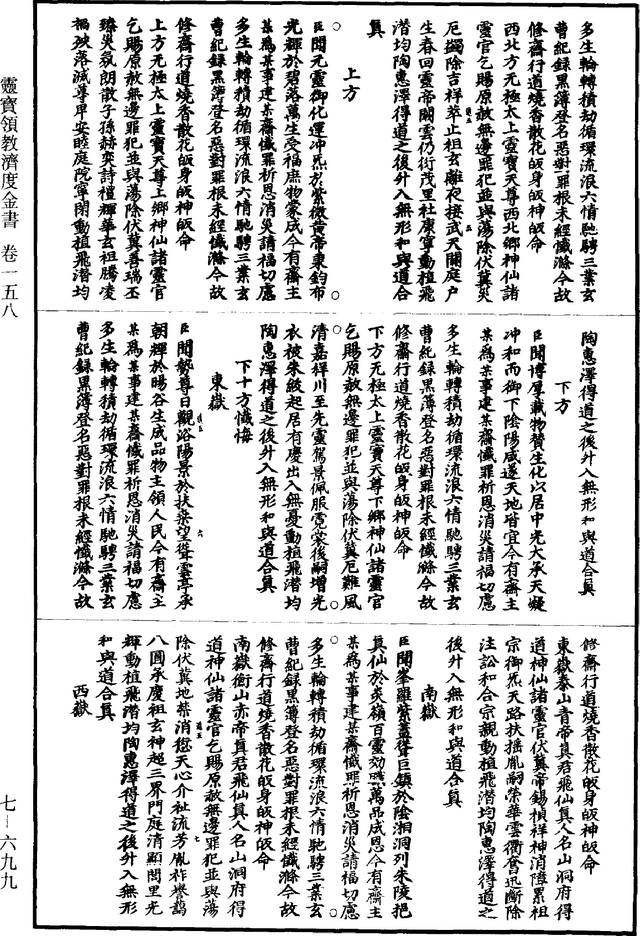 多生輪轉積劫循環流浪六情馳騁三業玄
曹紀録黑簿登名惡對罪根未經懺滌今故
修齋行道燒香散花皈身皈神皈命
西北方无極太上靈寶天尊西北鄉神仙諸
靈官乞賜原赦無邊罪犯並與蕩除伏冀災
厄蠲除吉祥萃止祖玄離夜接武天關庭户
生春回靈帝闕雲仍衍茂里社康寧動植飛
潛均陶惠澤得道之後外入無形和與道合
真
上方
臣聞元靈御化運冲炁於紫微黄帝東鈞布
光輝於碧落萬生受福庶物蒙成今有齋主
某爲某事建某齋懺罪祈恩消災請福切慮
多生輪轉積劫循環流浪六情馳騁三業玄
曹紀録黑簿登名惡對罪根未經懺滌今故
修齋行道燒香散花皈身皈神皈命
上方无極太上靈寶天尊上鄉神仙諸靈官
乞賜原赦無邊罪犯並與蕩除伏冀善瑞丕
臻災氛朗散子孫赫奕詩禮輝華玄祖騰凌
禍殃落滅尊卑安睦庭院寧閑動植飛潛均
陶惠澤得道之後外入無形和與道合真
下方
臣聞博厚載物贊生化以居中光大承天凝
冲和而御下陰陽咸遂天地皆宜今有齋主
某爲某事建某齋懺罪祈恩消災請福切慮
多生輪轉積劫循環流浪六情馳騁三業玄
曹紀録黑簿登名惡對罪根未經懺滌今故
修齋行道燒香散花皈身皈神皈命
下方无極太上靈寶天尊下鄉神仙諸靈官
乞賜原赦無邊罪犯並與蕩除伏冀厄難風
清嘉祥川至先靈駕景佩服霓裳後嗣增光
衣被朱紱起居有慶出入無憂動植飛潛均
陶惠澤得道之後外入無形和與道合真
下十方懺悔
東嶽
臣聞勢尊日觀浴陽景於扶桑望聳雲亭承
朝輝於暘谷生成品物主領人民今有齋主
某爲某事建某齋懺罪祈恩消災請福切慮
多生輪轉積劫循環流浪六情馳騁三業玄
曹紀録黑簿登名惡對罪根未經懺滌今故
修齋行道燒香散花皈身皈神皈命
東嶽泰山青帝真君飛仙真人名山洞府得
道神仙諸靈官伏冀帝錫禎祥神消障累祖
宗御炁天路扶摇胤嗣榮華雲衢奮迅斷除
注訟和合宗親動植飛潛均陶惠澤得道之
後外入無形和與道合真
南嶽
臣聞峯羅紫蓋聳巨鎮於陰湘洞列朱陵挹
真仙於炎嶺百靈効職萬品咸恩今有齋主
某爲某事建某齋懺罪祈恩消災請福切慮
多生輪轉積劫循環流浪六情馳騁三業玄
曹紀録黑簿登名惡對罪根未經懺滌今故
修齋行道燒香散花皈身皈神皈命
南嶽衡山赤帝真君飛仙真人名山洞府得
道神仙諸靈官乞賜原赦無邊罪犯並與蕩
除伏冀地禁消愆天心介祉流芳胤祚譽藹
八圓承慶祖玄神超三界門庭清顯閭里光
輝動植飛潛均陶惠澤得道之後外入無形
和與道合真
西嶽
靈寶領教濟度金書 卷一五八
七—六九九